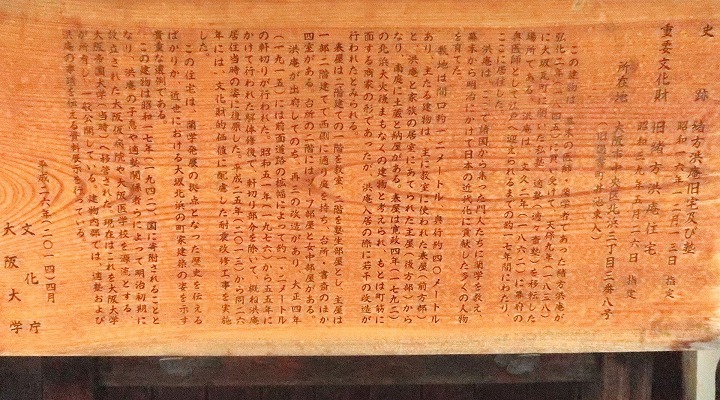 史跡 緒方洪庵旧宅及び塾
昭和一六年一二月一三日 指定
重要文化財 旧緒方洪庵住宅
昭和三九年五月二六日 指定
所在地 大阪市中央区北浜三丁目三番八号
この建物は、幕末の医師・蘭学者であった緒方洪庵が
弘化二年(一八四五)に買い受けて、天保九年(一八三八)
に大坂瓦町に開いた私塾「適塾」(適々斎塾)を移転した
場所である。洪庵は、文久二年(一八六二)に幕府の
奥医師として江戸へ迎えられるまでの約一七年間にわたり、
ここに居住した。
洪庵は、ここで諸国から集った門人たちに蘭学を教え、
幕末から明治にかけて日本の近代化に貢献した多くの人物
を育てた。
敷地は間口約一二メートル、奥行約四〇メートル
あり、主たる建物は、主に教室に使われた表屋(前方部)
と、洪庵と家族の居室にあてられた主屋(後方部)から
なり、南庭に土蔵と納屋がある。表屋は寛政四年(一七九二)
の北浜大火後まもなくの建物と考えられ、もとは町筋に
面する商家の形であったが、洪庵入居の際に若干の改造が
行われたとみられる。
表屋は二階建ての一階を教室、二階を塾生部屋とし、主屋は
一部二階建てで西側に通り庭を持ち、台所・書斎のほか
四室がある。台所の二階にはヅーフ部屋と女中部屋がある。
洪庵が出府してのち、再三の改造があり、大正四年
(一九一五)には前面道路の拡幅によって約一・二メートル
の軒切りが行われた。昭和五一年(一九七六)から五五年に
かけて行われた解体修復で、軒切り部分を除いて、概ね洪庵
居住当時の姿に復原した。平成二五年(二〇一三)から同二六
年には、文化財的価値に配慮した耐震改修工事を実施
した。
この住宅は、蘭学発展の拠点となった歴史を伝える
ばかりか、近世における大坂北浜の町家建築の姿を示す
貴重な遺例である。
この建物は昭和一七年(一九四二)国に寄附されることと
なり、洪庵の子息や適塾関係者らによって明治初期に
設立された大阪仮病院や大阪医学校を源流とする
大阪帝国大学(当時)に移管された。現在はこれを大阪大学
が所有し、一般公開している。建物内部では、適塾および
洪庵の事績を伝える資料展示を行っている。
平成二六年(二〇一四)四月
文化庁
大阪大学